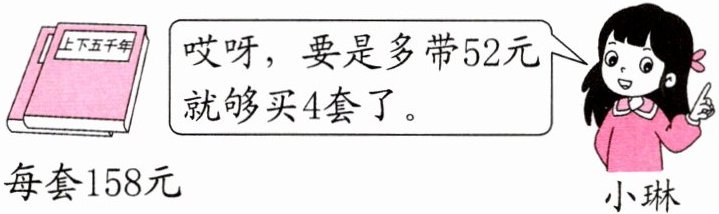 上下五千年
哎呀，要是多带52元
就够买4套了。
每套158元
小琳